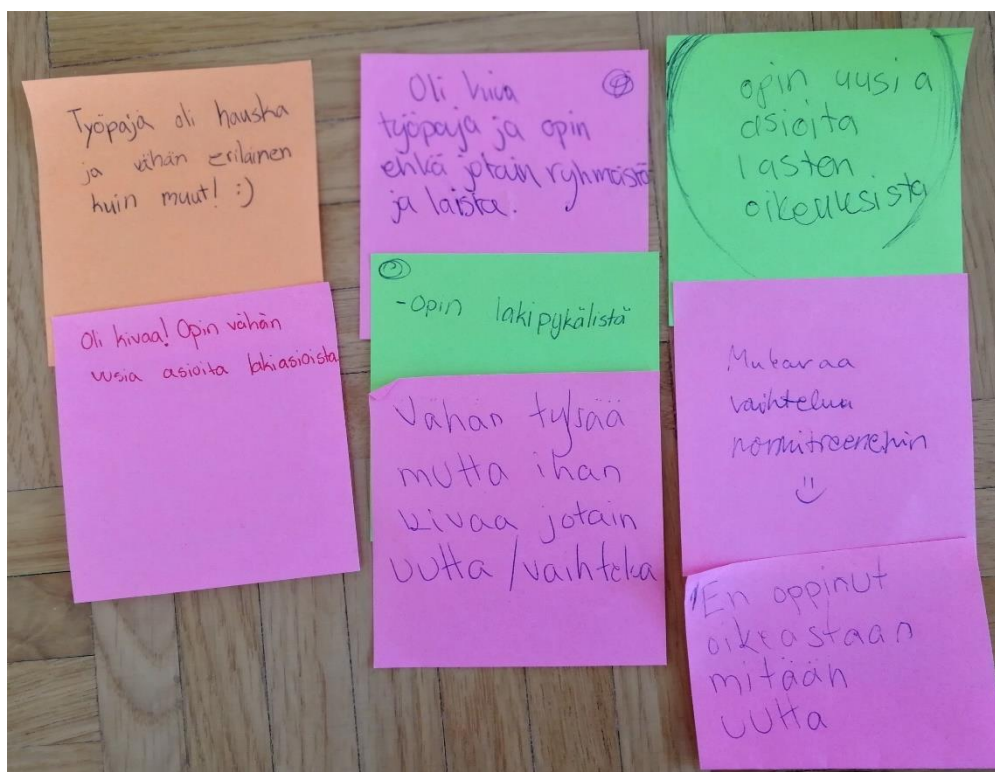 Työpaja oli hauska
ja vähän erilainen
kuin muut! :)
Oli kivaa! Opin vähän
uusia asioita lakiasioista
Oli kiva
työpaja ja opin
ehkä jotain ryhmästä
ja laista.
-Opin lakipykälistä
Vähän tylsää
mutta ihan
kivaa jotain
uutta /vaihtelua
opin uusia
asioita
lasten
oikeuksista
Mukavaa
vaihtelua
normitreeneihin
En oppinut
oikeastaan
mitään
uutta